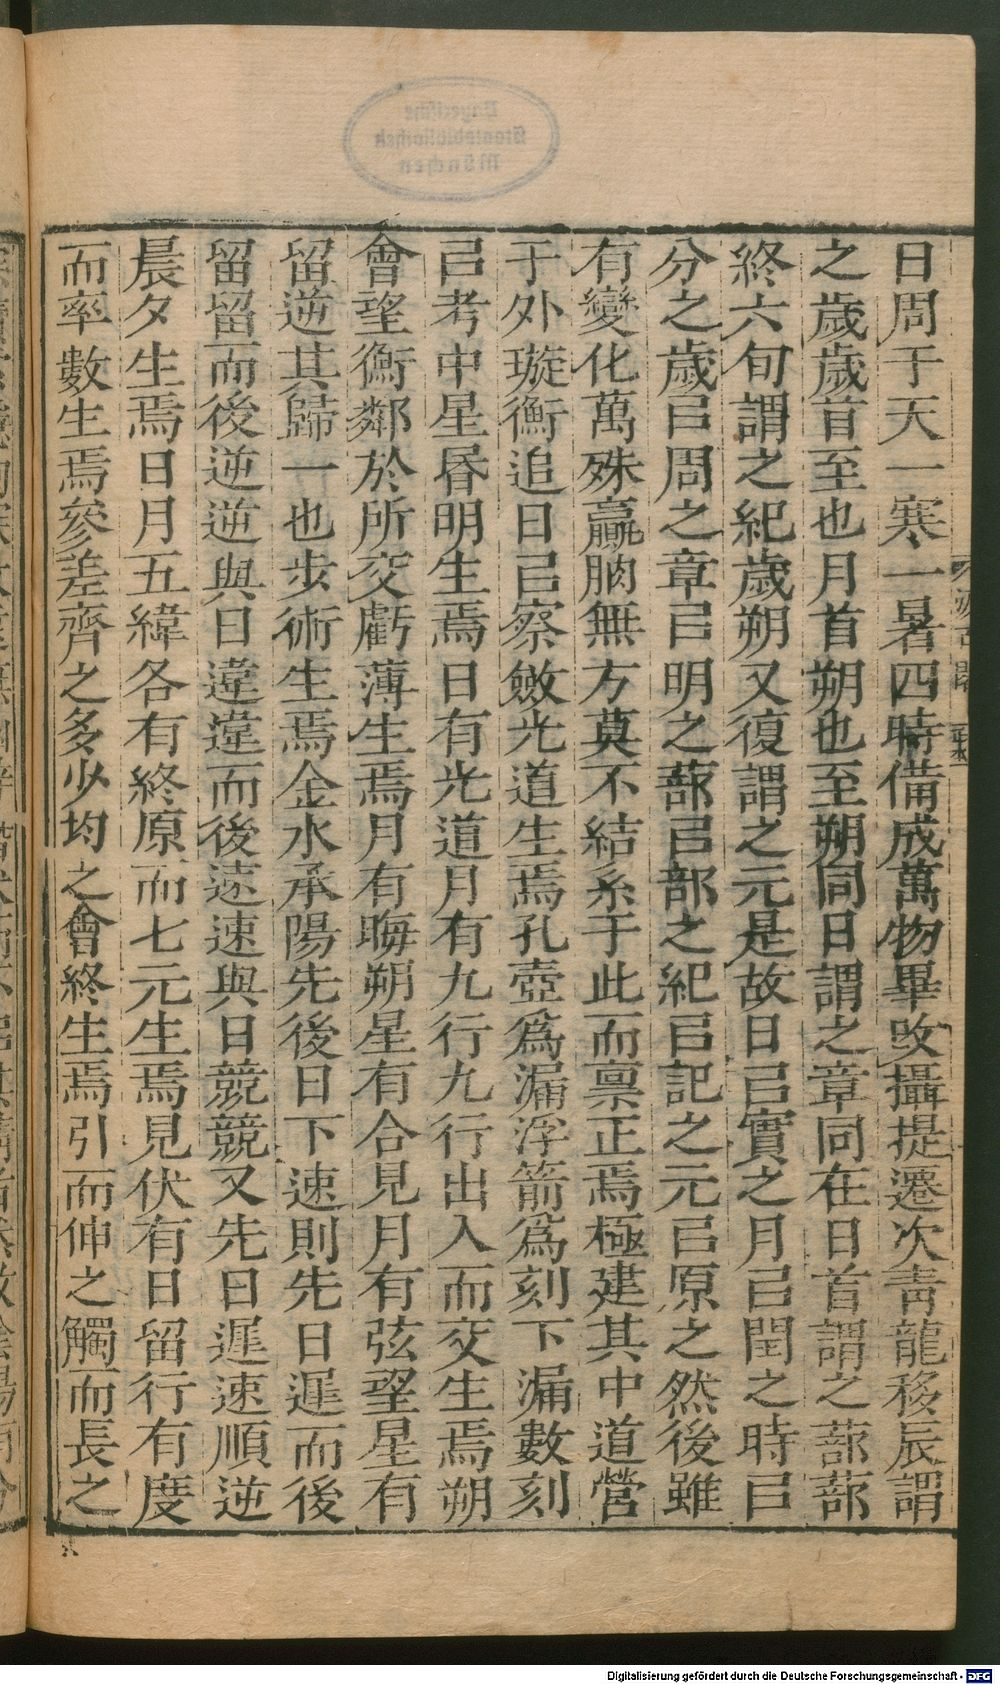 日周于天一寒一暑四時備成萬物畢攺攝提遷次靑龍移辰謂
之歲歲首至也月首朔也至朔同日謂之章同在日首謂之蔀蔀
終六旬謂之紀歲朔又復謂之元是故日㠯實之月㠯閏之時㠯
分之歲㠯周之章㠯明之蔀㠯部之紀㠯記之元㠯原之然後雖
有變化萬殊贏朒無方莫不結系于此而禀正焉極建其中道營
于外璇衡追日㠯察斂光道生焉孔壺爲漏浮箭爲刻下漏數刻
㠯考中星昬明生焉日有光道月有九行九行出入而交生焉朔
會望衡鄰於所交虧薄生焉月有晦朔星有合見月有弦望星有
留逆其歸一也步術生焉金水承陽先後日下速則先日遲而後
留留而後逆逆與日違違而後速速與日競競又先日遲速順逆
晨夕生焉日月五緯各有終原而七元生焉見伏有日留行有度
而率數生焉參差齊之多少均之會終生焉引而伸之觸而長之
Bayerische
Staatsbibliothek
München
Digitalisierung gefördert durch die Deutsche Forschungsgemeinschaft - DFG